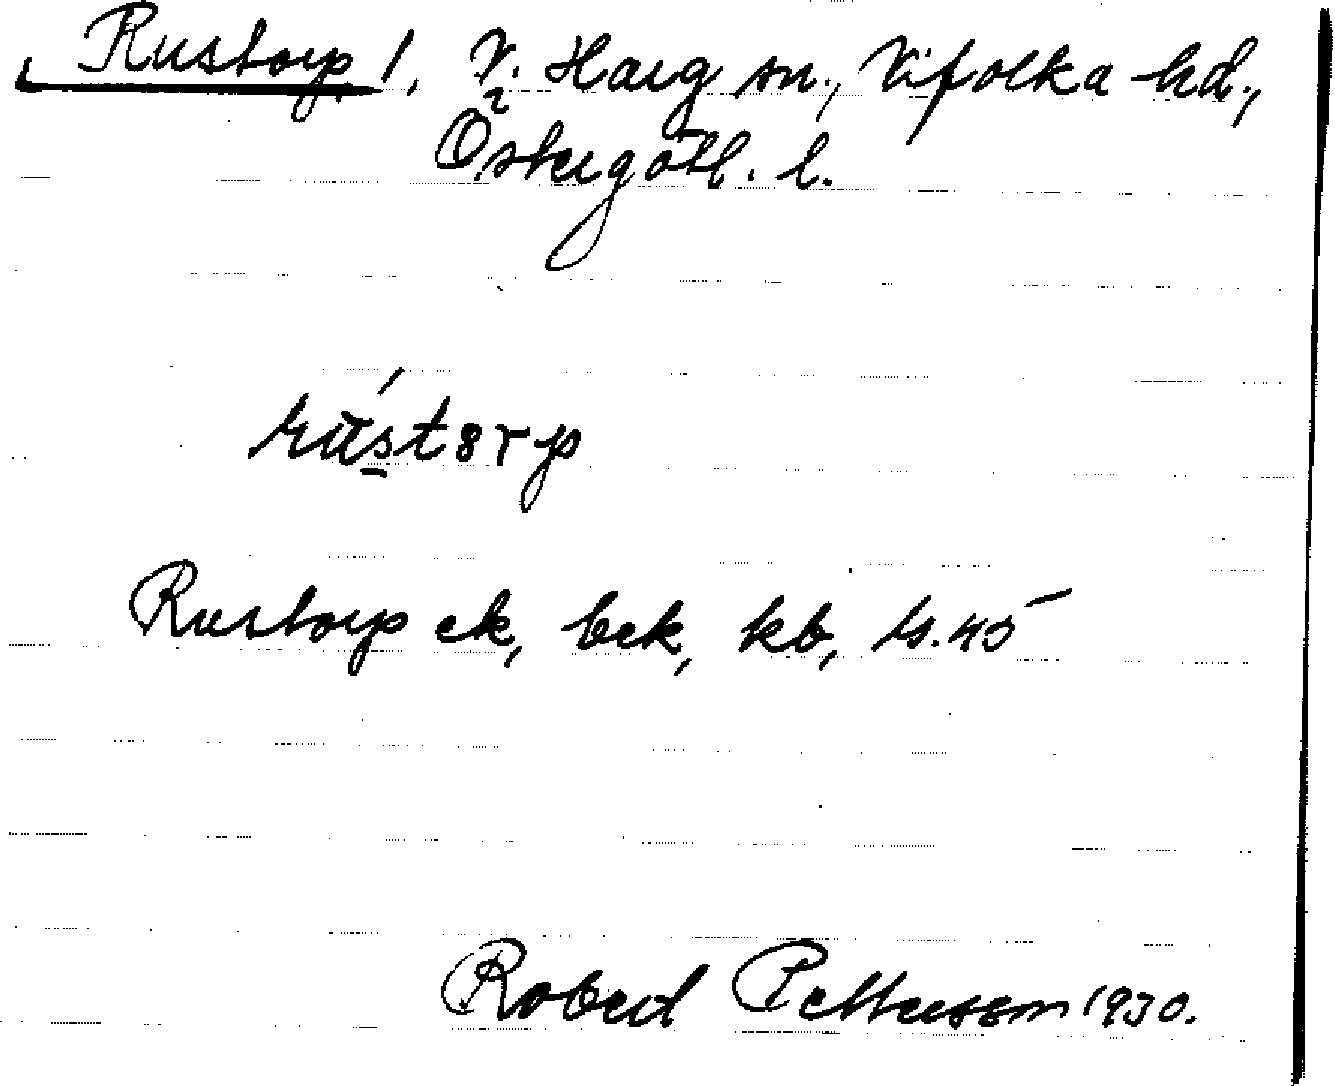 Rustorp 1, V. Harg sn., Vifolka hd.,
Östergötl. l.
rústorp
Rustorp ek, bek, kb, ls. 40
Robert Pettersson 1930.